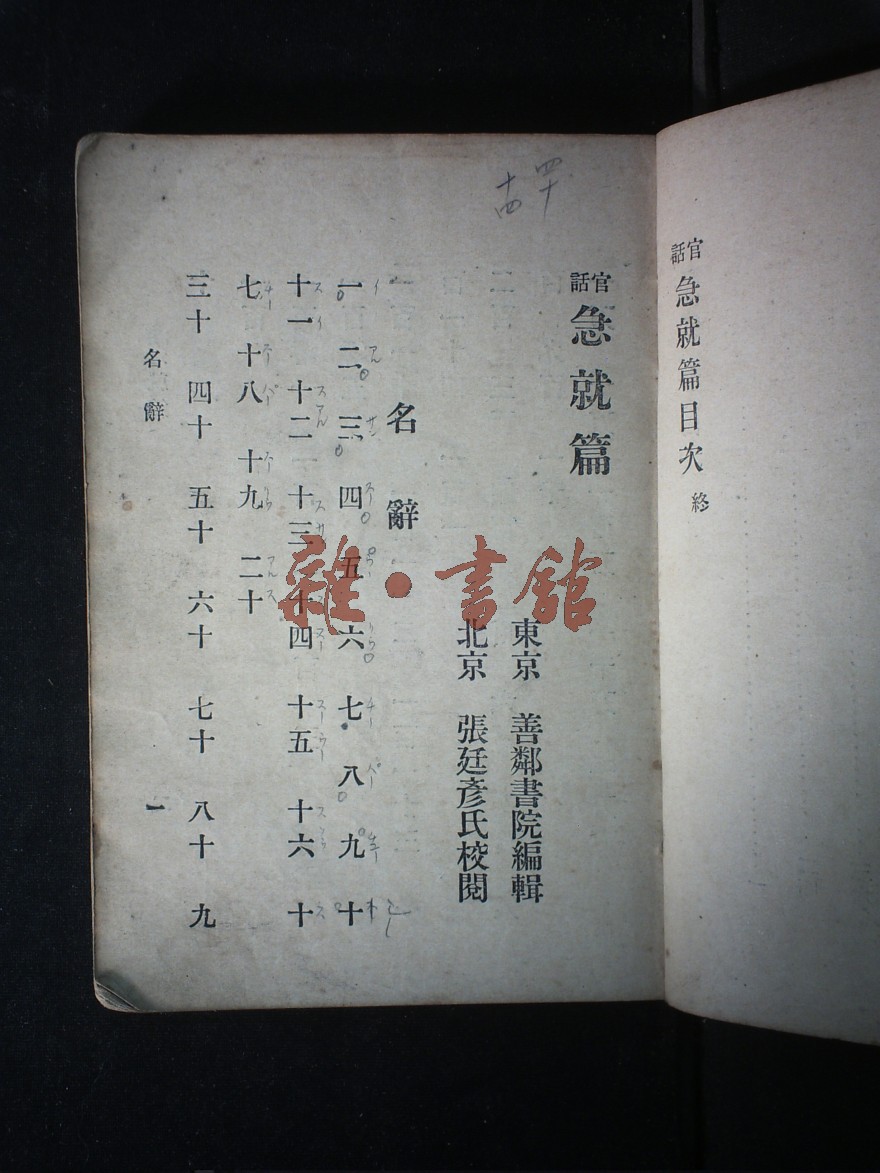 官話 急就篇目次 終
四十
十四
官話 急就篇
東京 善鄰書院編輯
北京 張廷彥氏校閱
名辭
一 二 三 四 五 六 七 八 九 十
十一 十二 十三 十四 十五 十六 十
七 十八 十九 二十
三十 四十 五十 六十 七十 八十 九
名辭 一
雜·書館